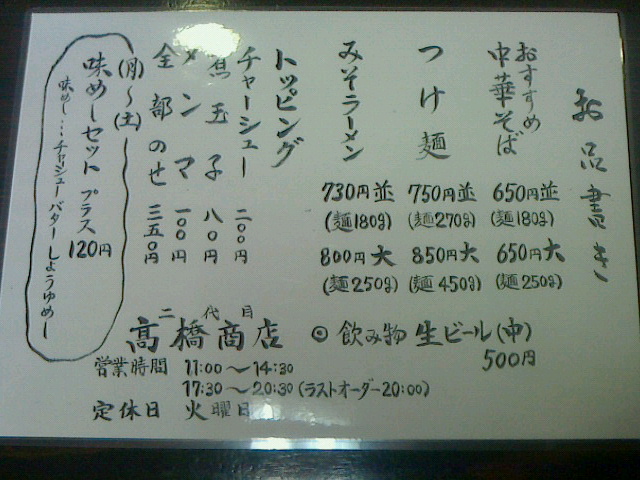 お品書き
おすすめ
中華そば
並 650円
(麺180g)
大 650円
(麺250g)
つけ麺
並 750円
(麺270g)
大 850円
(麺450g)
みそラーメン
並 730円
(麺180g)
大 800円
(麺250g)
トッピング
チャーシュー 二〇〇円
煮玉子 八〇円
メンマ 一〇〇円
全部のせ 三五〇円
(月)～(土)
味めしセット プラス 120円
味めし…チャシューバターしょうゆめし
◎ 飲み物 生ビール(中)
500円
二代目
高橋商店
営業時間 11:00～14:30
17:30～20:30(ラストオーダー20:00)
定休日 火曜日